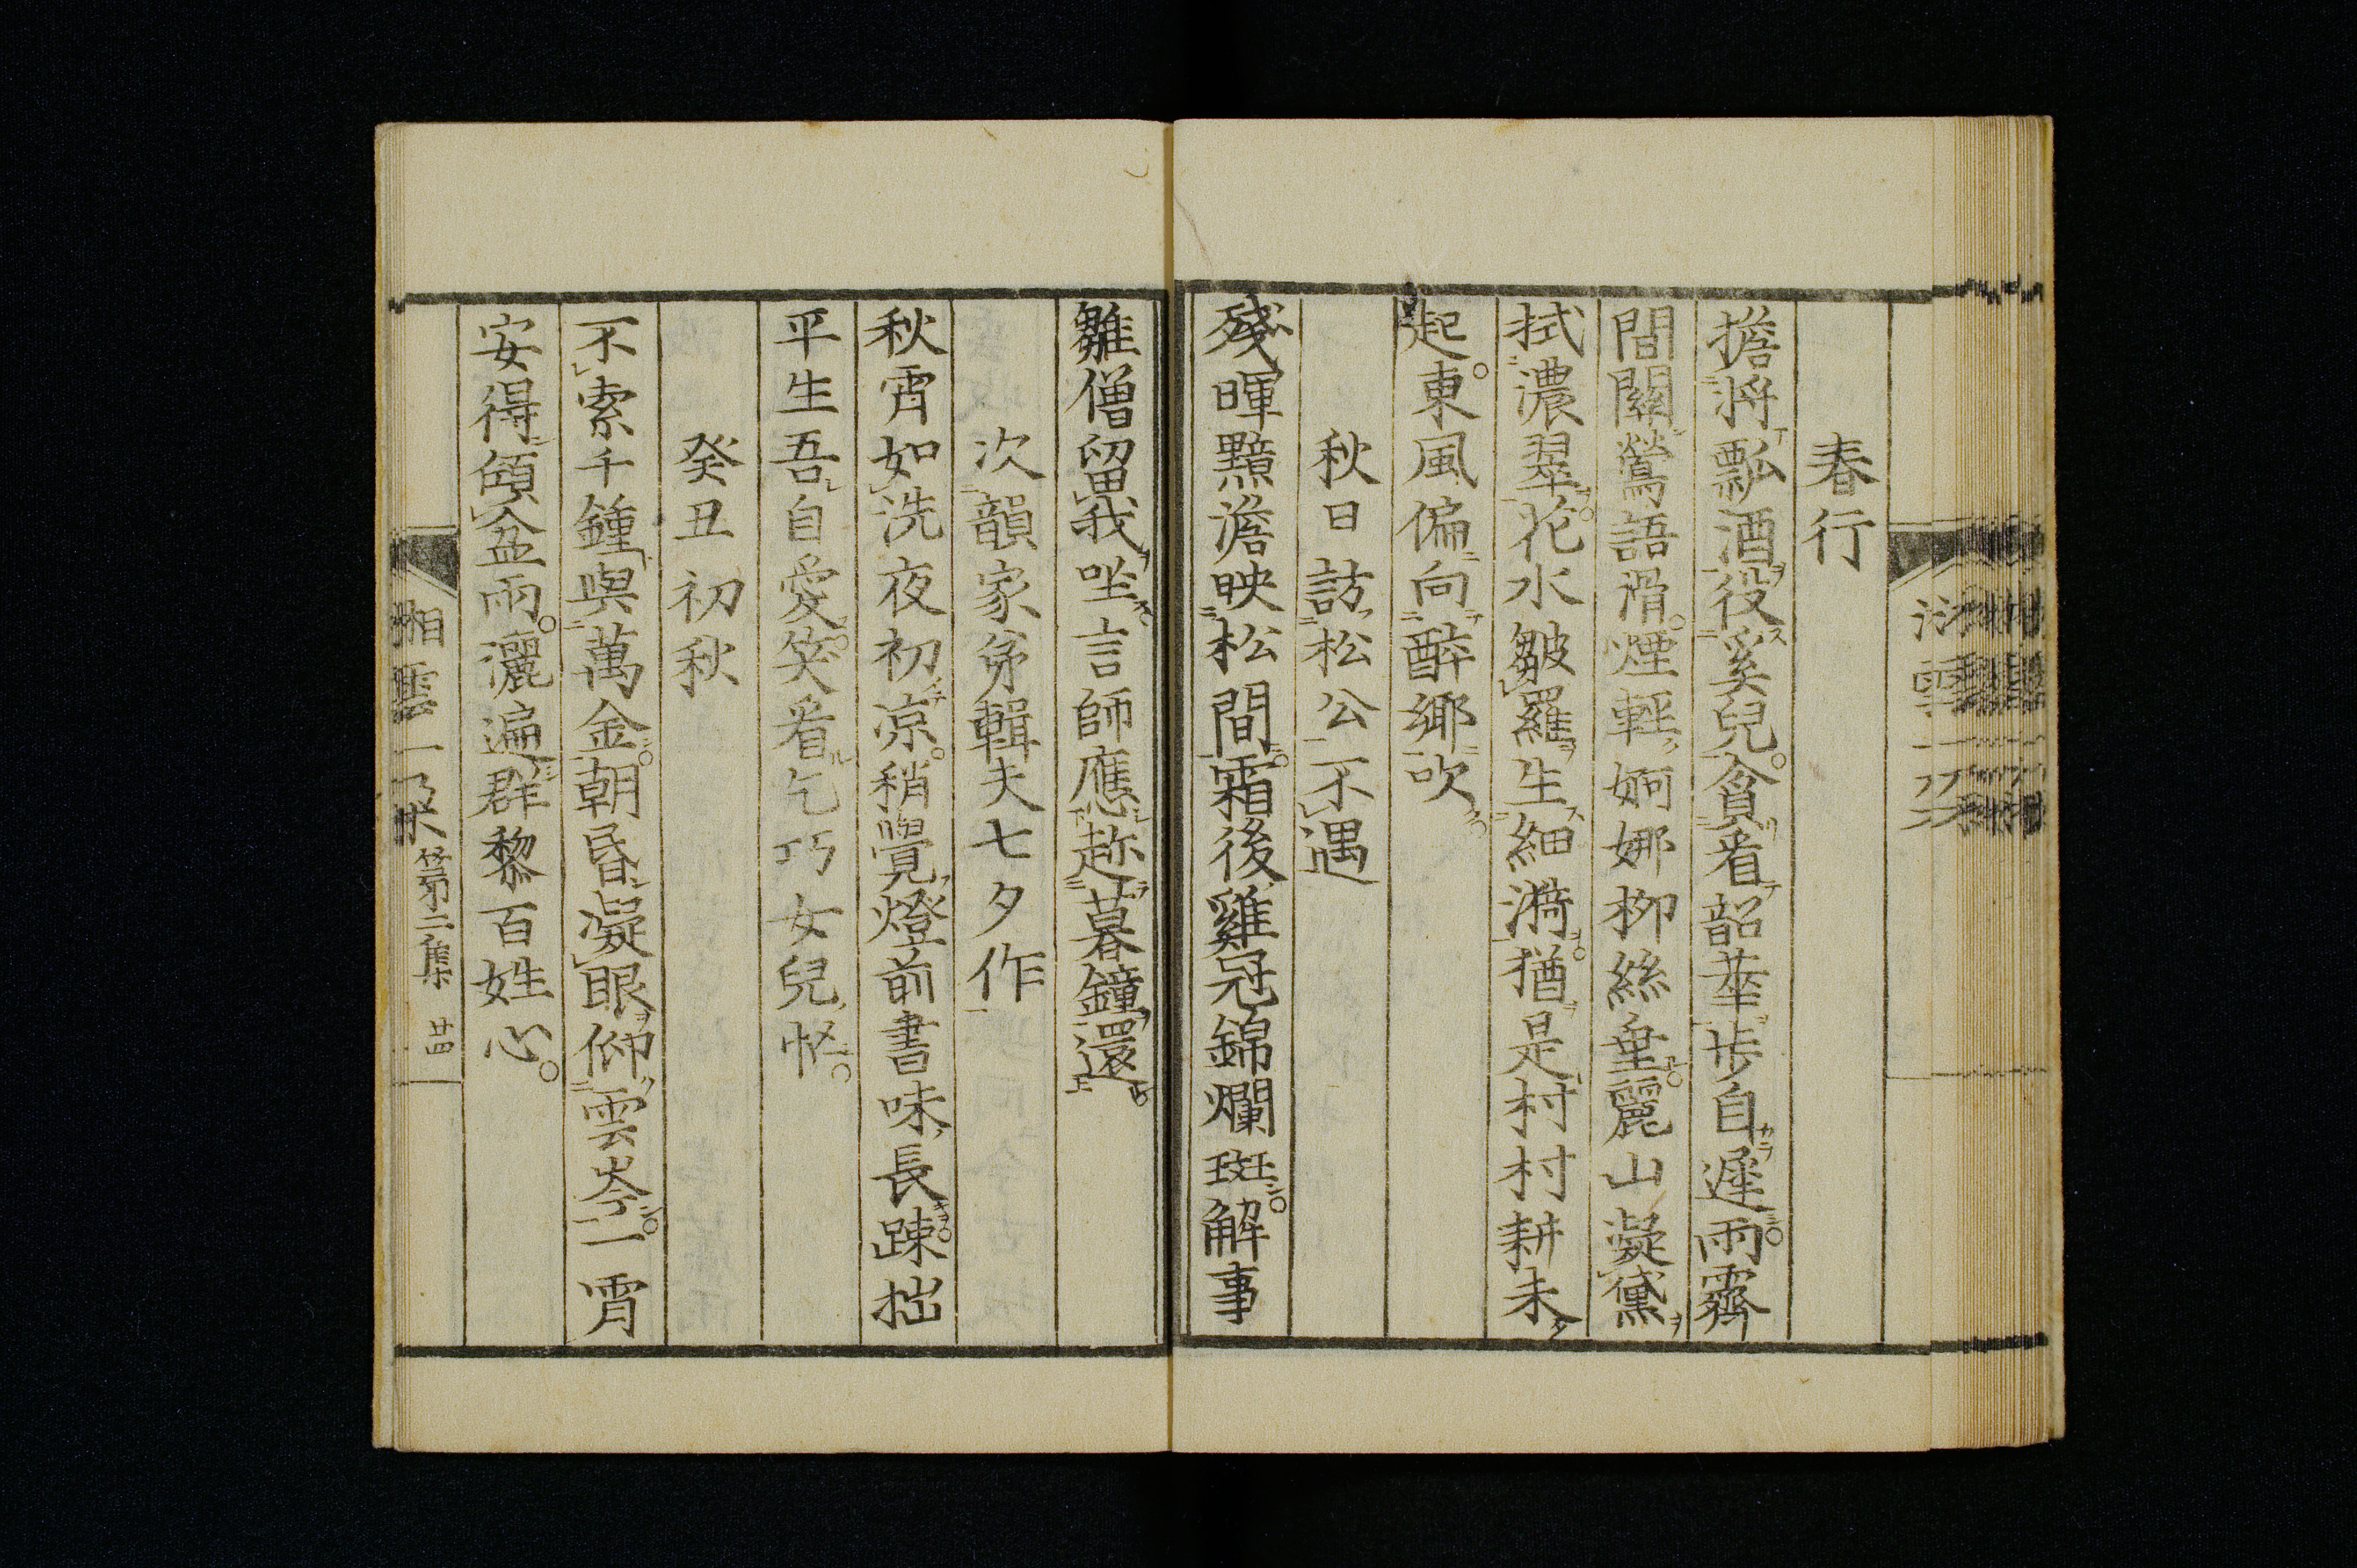 春行
擔將瓢酒役奚兒。貪看韶華步自遲。雨霽
間關鶯語滑。煙輕婀娜柳絲垂。麗山凝黛
拭濃翠。花水皺羅生細漪。猶是村村耕未
起。東風偏向醉鄉吹
秋日訪松公不遇
殘暉黯澹映松間。霜後雞冠錦爛斑。解事
雛僧留我坐言師應趂暮鐘還
次韻家弟輯夫七夕作
秋宵如洗夜初凉。稍覺燈前書味長。踈拙
平生吾自愛。笑看乞巧女兒忙。
癸丑初秋
不索千鍾與萬金。朝昏凝眼仰雲岑。一宵
安得傾盆雨。灑遍群黎百姓心。
湘雲一朶 第二集 廿四